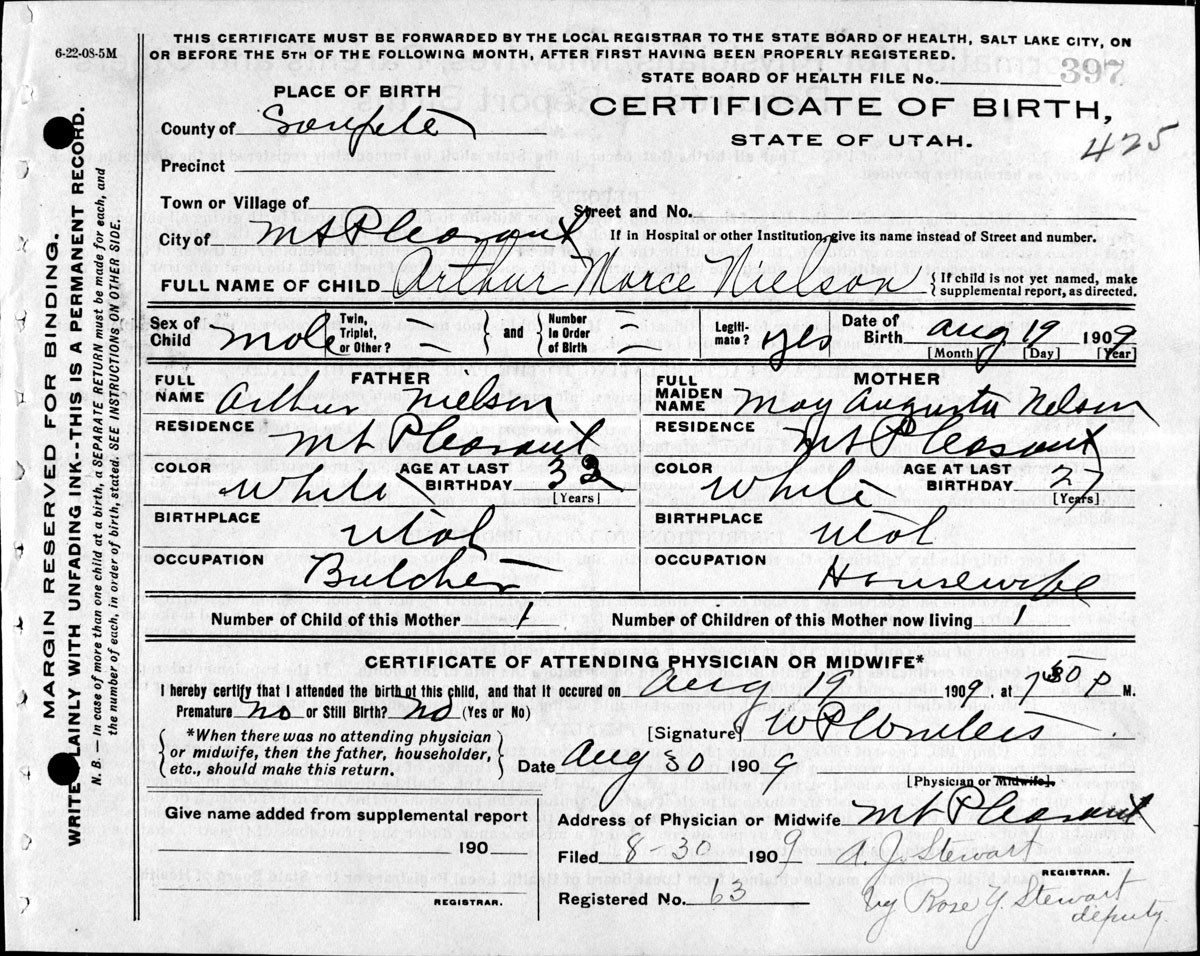 6-22-08-5M
THIS CERTIFICATE MUST BE FORWARDED BY THE LOCAL REGISTRAR TO THE STATE BOARD OF HEALTH, SALT LAKE CITY, ON
OR BEFORE THE 5TH OF THE FOLLOWING MONTH, AFTER FIRST HAVING BEEN PROPERLY REGISTERED.
STATE BOARD OF HEALTH FILE No. 397
PLACE OF BIRTH
CERTIFICATE OF BIRTH,
STATE OF UTAH.
425
County of Sanpete
Precinct
Town or Village of
Street and No.
City of Mt Pleasant
If in Hospital or other Institution, give its name instead of Street and number.
FULL NAME OF CHILD Arthur Morce Nielson { If child is not yet named, make
supplemental report, as directed.
Sex of Child Male
Twin, Triplet, or Other? — } and { Number in Order of Birth —
Legitimate? Yes
Date of Birth Aug 19 1909
[Month] [Day] [Year]
FATHER
FULL NAME Arthur Nielson
RESIDENCE Mt Pleasant
COLOR White AGE AT LAST BIRTHDAY 33 [Years]
BIRTHPLACE Utah
OCCUPATION Butcher
MOTHER
FULL MAIDEN NAME May Augusta Nelson
RESIDENCE Mt Pleasant
COLOR White AGE AT LAST BIRTHDAY 27 [Years]
BIRTHPLACE Utah
OCCUPATION Housewife
Number of Child of this Mother 1 Number of Children of this Mother now living 1
CERTIFICATE OF ATTENDING PHYSICIAN OR MIDWIFE*
I hereby certify that I attended the birth of this child, and that it occured on Aug 19 1909, at 7 30 P M.
Premature No or Still Birth? No (Yes or No)
*When there was no attending physician
or midwife, then the father, householder,
etc., should make this return.
[Signature]
Date Aug 30 1909
[Physician or Midwife].
Address of Physician or Midwife Mt Pleasant
Give name added from supplemental report
190
REGISTRAR.
Filed 8-30 1909 A. J. Stewart
REGISTRAR.
Registered No. 63 by Rose Y. Stewart
deputy
MARGIN RESERVED FOR BINDING.
WRITE PLAINLY WITH UNFADING INK--THIS IS A PERMANENT RECORD.
N. B.— In case of more than one child at a birth, a SEPARATE RETURN must be made for each, and
the number of each, in order of birth, stated. SEE INSTRUCTIONS ON OTHER SIDE.